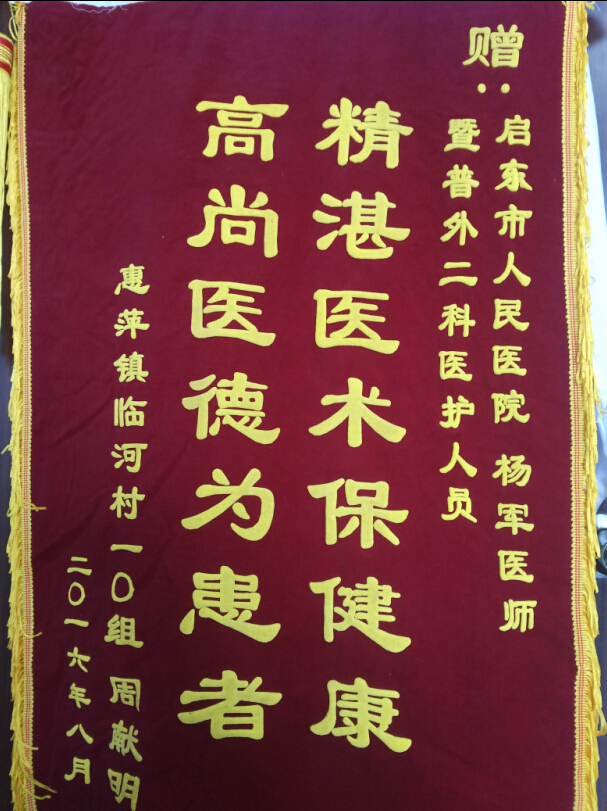 赠：
启东市人民医院 杨军医师
暨普外二科医护人员
精湛医术保健康
高尚医德为患者
惠萍镇临河村一〇组 周献明
二〇一六年八月